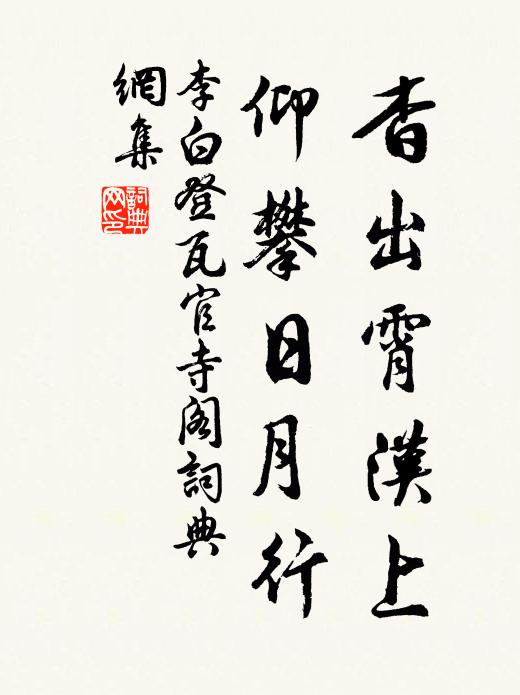 杳出霄漢上
仰攀日月行
李白登瓦官寺阁詞典
網集
詞典
网印